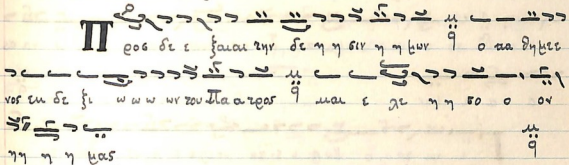 Προς δε ε ξαιαι την δε η η σιν η η μων ο κα θημε ε
νος εκ δε ξι ω ω ω ων του Πα α τρος και ε λε η η σο ο ον
η η η η μας